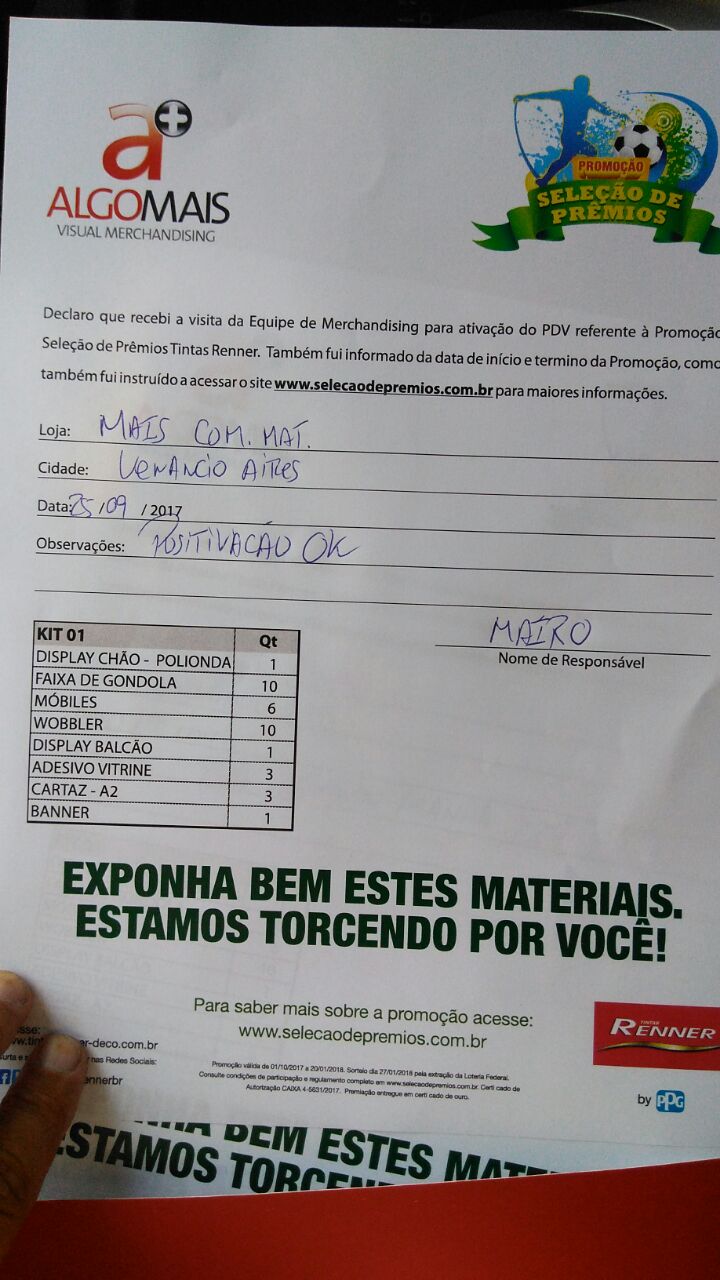 a+
ALGOMAIS
VISUAL MERCHANDISING
PROMOÇÃO
SELEÇÃO DE
PRÊMIOS
Declaro que recebi a visita da Equipe de Merchandising para ativação do PDV referente à Promoção
Seleção de Prêmios Tintas Renner. Também fui informado da data de início e termino da Promoção, como
também fui instruído a acessar o site www.selecaodepremios.com.br para maiores informações.
Loja: MAIS COM. MAT.
Cidade: VENANCIO AIRES
Data: 25/09 /2017
Observações: POSITIVAÇÃO OK
MAIRO
Nome de Responsável
KIT 01 Qt
DISPLAY CHÃO - POLIONDA 1
FAIXA DE GONDOLA 10
MÓBILES 6
WOBBLER 10
DISPLAY BALCÃO 1
ADESIVO VITRINE 3
CARTAZ - A2 3
BANNER 1
EXPONHA BEM ESTES MATERIAIS.
ESTAMOS TORCENDO POR VOCÊ!
Para saber mais sobre a promoção acesse:
www.selecaodepremios.com.br
TINTAS
RENNER
by PPG
sse:
r-deco.com.br
nas Redes Sociais:
ennerbr
Promoção válida de 01/10/2017 a 20/01/2018. Sorteio dia 27/01/2018 pela extração da Loteria Federal.
Consulte condições de participação e regulamento completo em www.selecaodepremios.com.br. Certi cado de
Autorização CAIXA 4-5631/2017. Premiação entregue em certi cado de ouro.
HA BEM ESTES MATE
ESTAMOS TORCEND